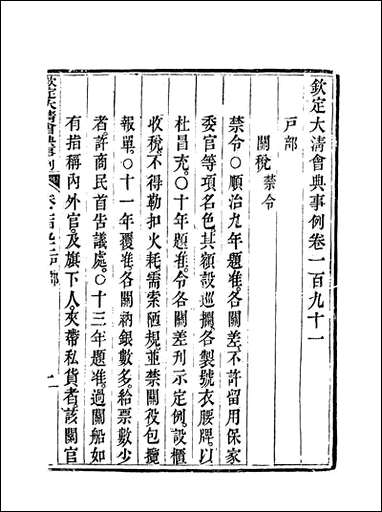 欽定大清會典事例卷一百九十一
戶部
關稅禁令
禁令○順治九年題准各關差不許留用保家
委官等項名色其額設巡攔各製號衣腰牌以
杜昌充○十年題准令各關差刊示定例設櫃
收稅不得勒扣火耗需索陋規並禁關役包攬
報單○十一年覆准各關納銀數多給票數少
者許商民首告議處○十三年題准過關船如
有指稱內外官及旗下人夾帶私貨者該關官
欽定大清會典事例